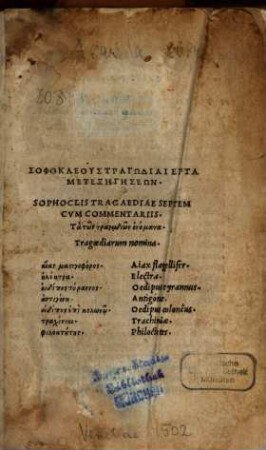 ΣΟΦΟΚΛΕΟΥΣ ΤΡΑΓΩΔΙΑΙ ΕΠΤΑ
ΜΕΤ ΕΞΗΓΗΣΕΩΝ.
SOPHOCLIS TRAGAEDIAE SEPTEM
CVM COMMENTARIIS.
Τὰ τῶν τραγῳδιῶν ὀνόματα.
Tragœdiarum nomina.
αἴας μαστιγοφόρος. Aiax flagellifer.
ἠλέκτρα. Electra.
οἰδίπους τύραννος. Oedipus tyrannus.
ἀντιγόνη. Antigone.
οἰδίπους ἐπὶ κολωνῷ. Oedipus coloneus.
τραχίνιαι. Trachiniæ.
φιλοκτήτης. Philoctetes.
Bibliothek
MÜNCHEN
München
1502